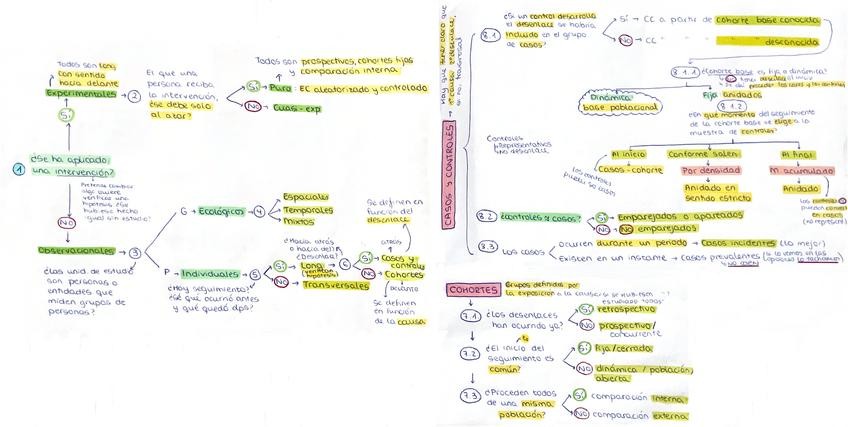 Todos son long
con sentido
hacia delante
Experimentales
2
El que una
persona reciba
la intervención,
¿se debe solo
al azar?
Todos son prospectivos, cohortes fijas
y comparación interna.
Sí Puro: EC aleatorizado y controlado
NO Cuasi-exp
Sí
1
¿Se ha aplicado
una intervención?
NO
Observacionales
3
¿Las unid de estudio
son personas o
entidades que
miden grupos de
personas?
G → Ecológicos
4
Espaciales
Temporales
Mixtos
P → Individuales
5
¿Hay seguimiento?
¿Sé qué ocurrió antes
y qué quedó dps?
Sí Long
NO Transversales
¿Hacia atrás
o hacia del?
6
Sí Casos y
controles
NO Cohortes
Se definen en
función del
desenlace
Se definen
en función
de la causa
CASOS Y CONTROLES
8.1
¿Si un control desarrolla
el desenlace se habría
incluido en el grupo
de casos?
Sí → CC a partir de cohorte base conocida
NO → CC " " " desconocida
8.1.1
¿Cohorte base es fija o dinámica?
Dinámica
base poblacional
Fija anidados
8.1.2
¿En qué momento del seguimiento
de la cohorte base se elige a la
muestra de controles?
Controles
Representativos
No desenlace
Al inicio
Casos-cohorte
Los controles
pueden ser casos
Conforme salen
Por densidad
Anidado en
sentido estricto
Al final
M. acumulado
Anidado
8.2
¿Controles y casos?
Sí Emparejados o apareados
NO No emparejados
8.3
Los casos
Ocurren durante un periodo → Casos incidentes (lo mejor)
Existen en un instante → Casos prevalentes
COHORTES
Grupos definidos por
la exposición a la causa
7.1
¿Los desenlaces
han ocurrido ya?
Sí retrospectivo
NO prospectivo/
concurrente
7.2
¿El inicio del
seguimiento es
común?
Sí fija/cerrada
NO dinámica/población
abierta
7.3
¿Proceden todos
de una misma
población?
Sí comparación interna
NO comparación externa